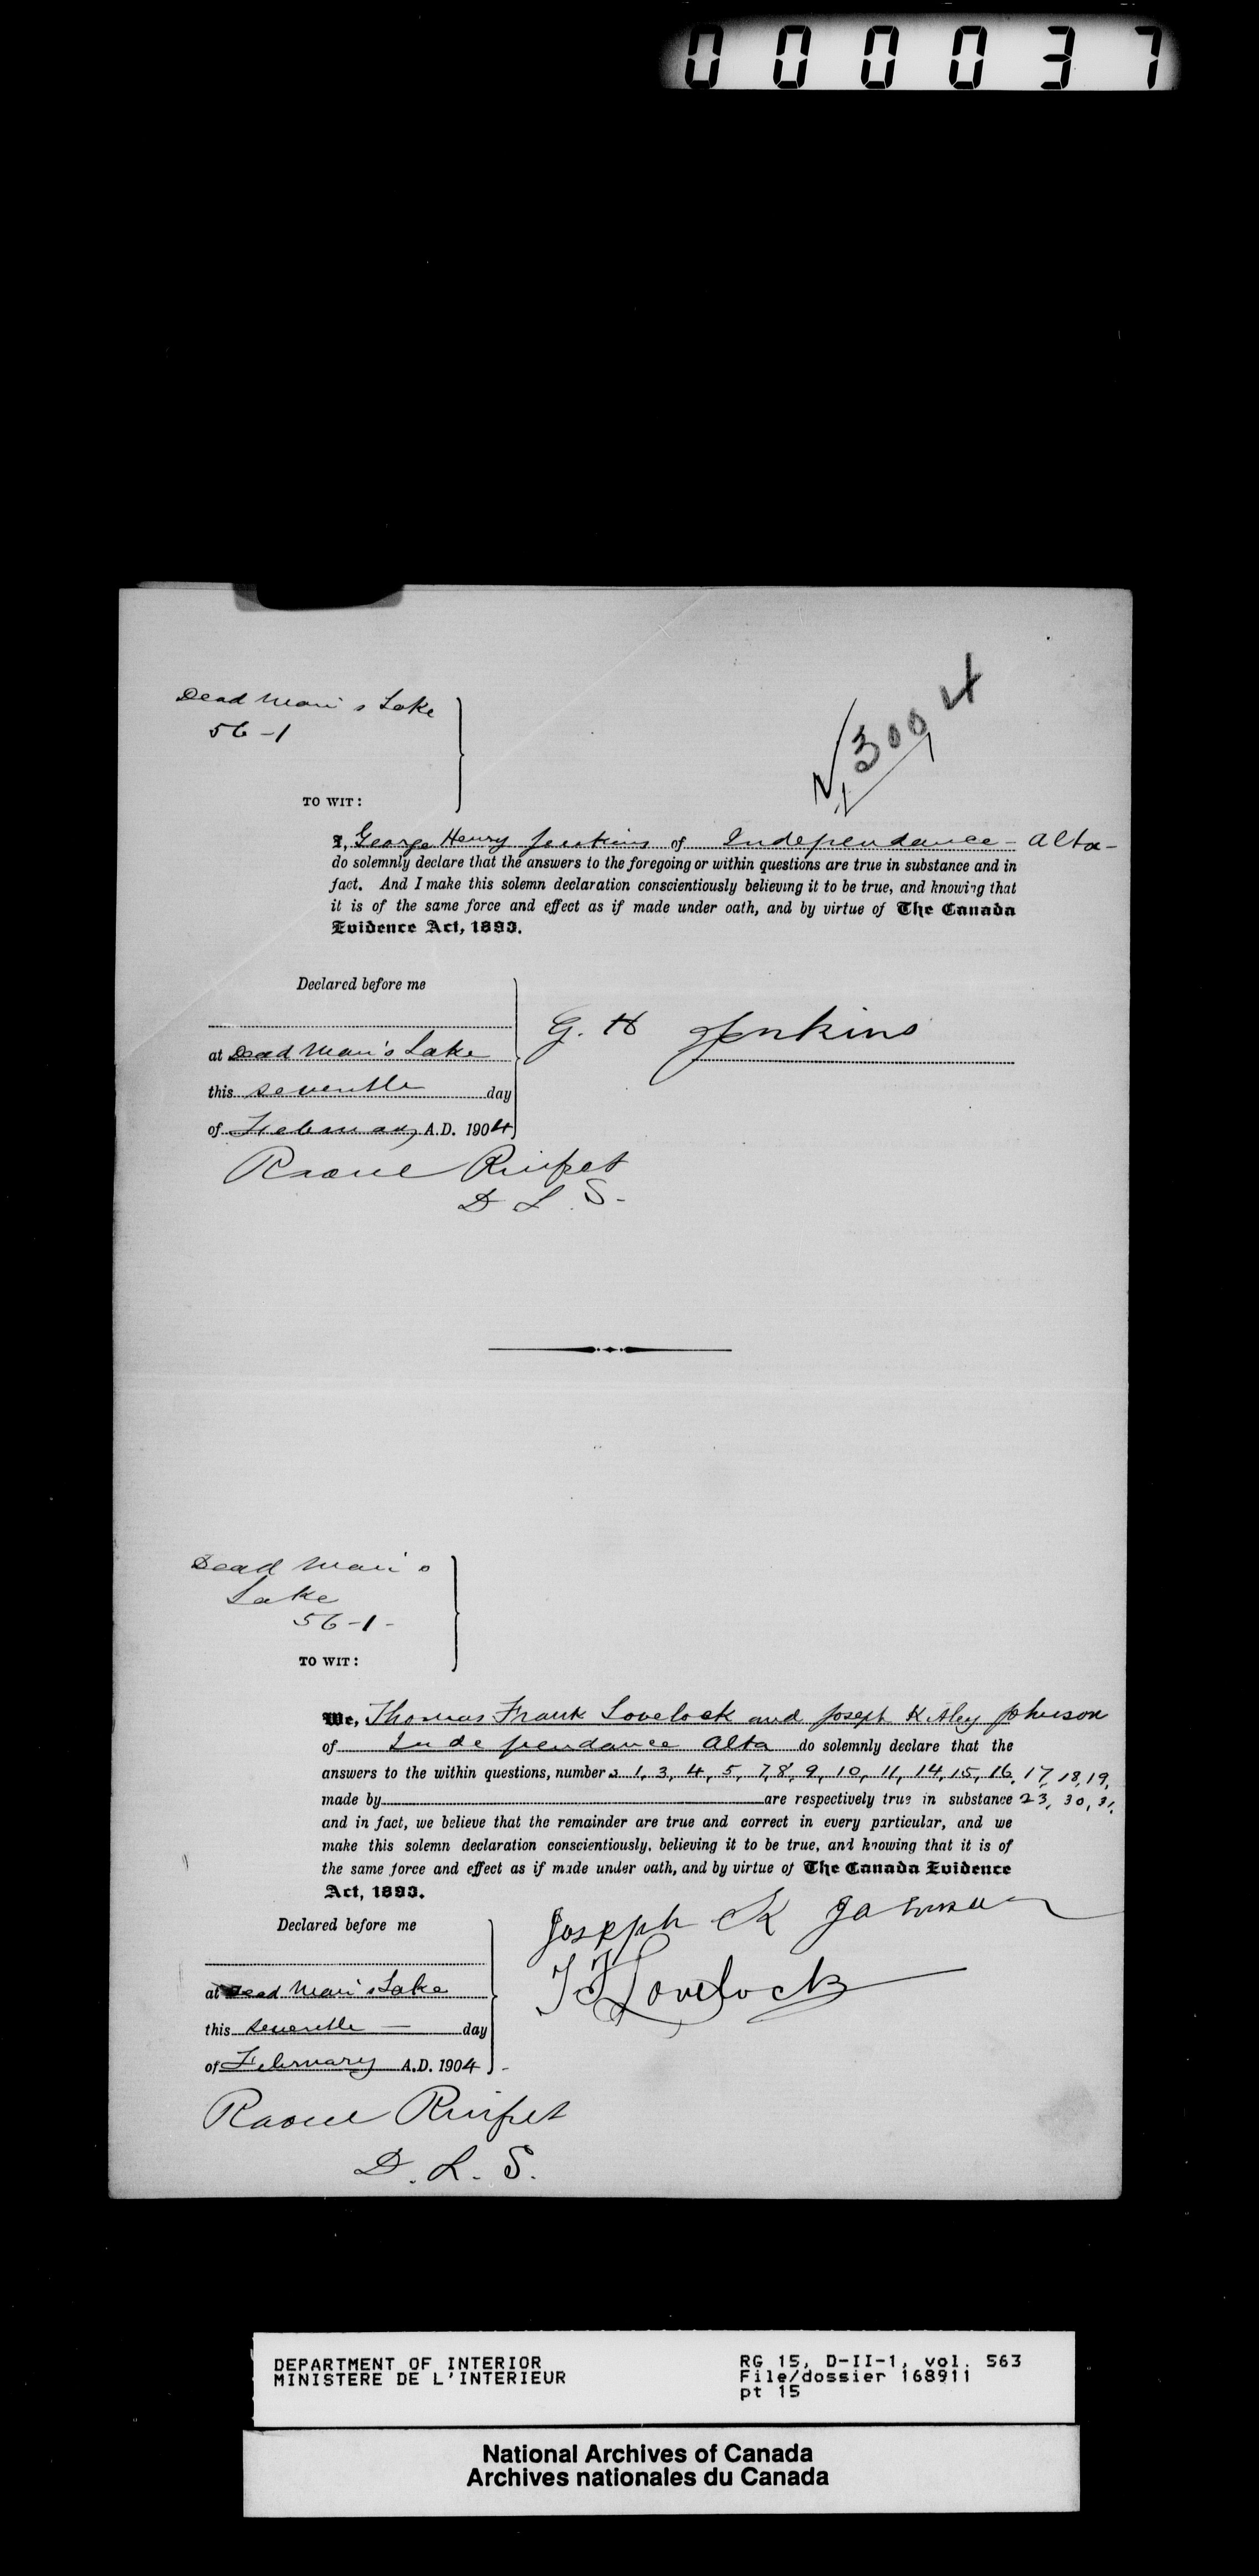 000037
Dead Man's Lake
56-1
TO WIT:
3004
I, George Henry Jenkins of Independance - Alta -
do solemnly declare that the answers to the foregoing or within questions are true in substance and in
fact. And I make this solemn declaration conscientiously believing it to be true, and knowing that
it is of the same force and effect as if made under oath, and by virtue of The Canada
Evidence Act, 1893.
Declared before me
at Dead Man's Lake
this seventh day
of February A.D. 1904
G. H Jenkins
Raoul Rinfret
D L. S.
Dead Man's
Lake
56-1-
TO WIT:
We, Thomas Frank Lovelock and Joseph Johnson
of Independance Alta do solemnly declare that the
answers to the within questions, numbers 1, 3, 4, 5, 7, 8, 9, 10, 11, 14, 15, 16, 17, 18, 19,
made by are respectively true in substance 23, 30, 31,
and in fact, we believe that the remainder are true and correct in every particular, and we
make this solemn declaration conscientiously, believing it to be true, and knowing that it is of
the same force and effect as if made under oath, and by virtue of The Canada Evidence
Act, 1893.
Declared before me
at Dead Man's Lake
this seventh — day
of February A.D. 1904 -
Joseph K Johnson
T F Lovelock
Raoul Rinfret
D. L. S.
DEPARTMENT OF INTERIOR
MINISTERE DE L'INTERIEUR
RG 15, D-II-1, vol. 563
File/dossier 168911
pt 15
National Archives of Canada
Archives nationales du Canada